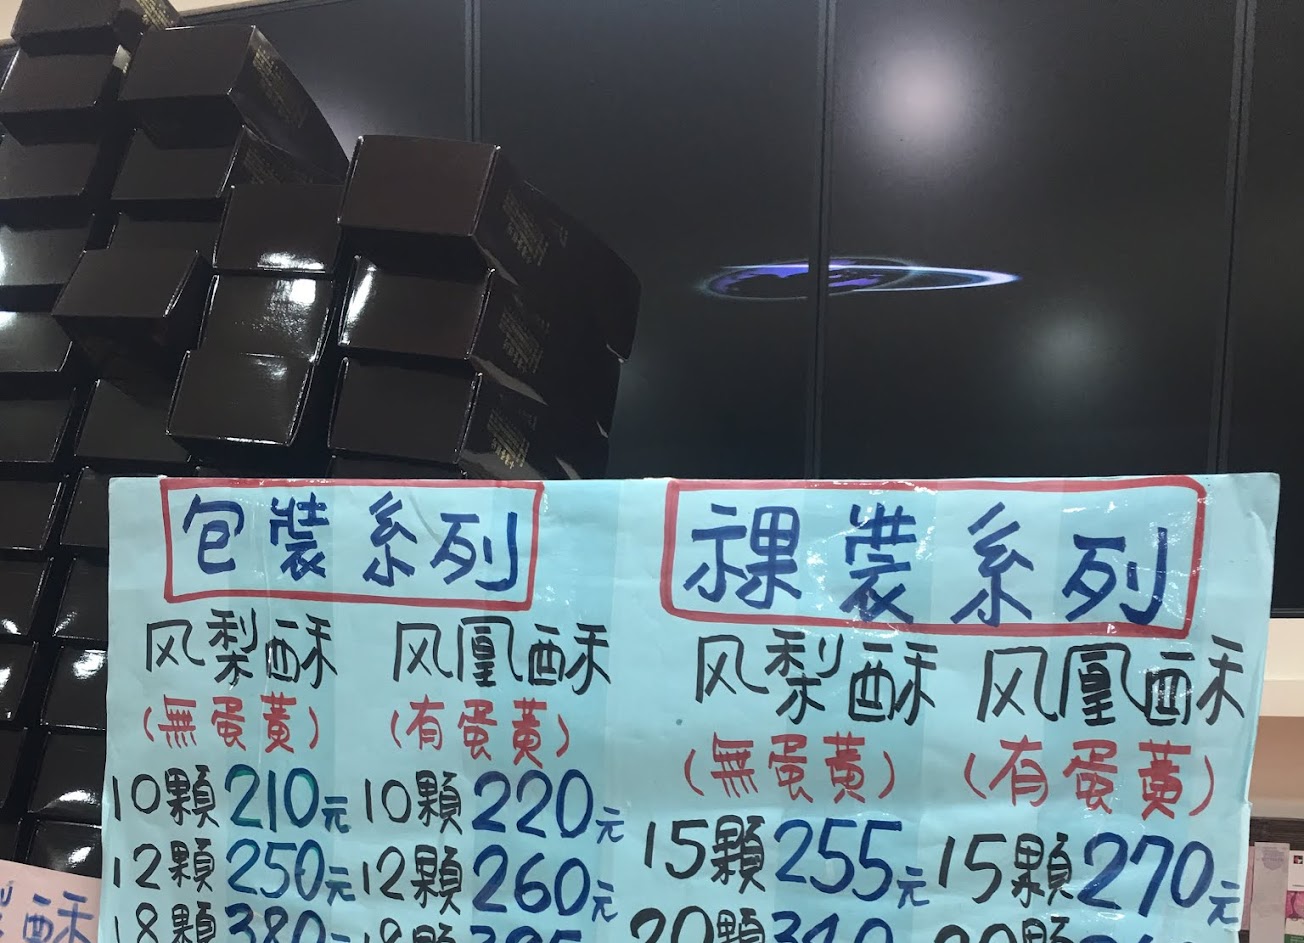 包裝系列
风梨酥 风凰酥
(無蛋黃) (有蛋黃)
10顆210元 10顆220元
12顆250元 12顆260元
18顆380元 18顆
裸裝系列
风梨酥 风凰酥
(無蛋黃) (有蛋黃)
15顆255元 15顆270元
20顆 20顆
酥